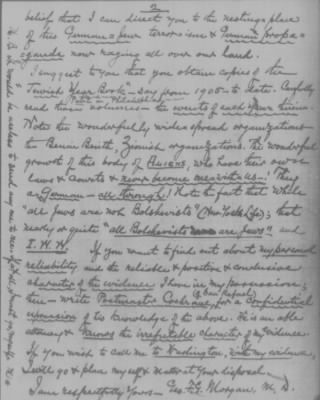 2
belief that I can direct you to the nesting place
of this German & Jew terrorism & German propa-
ganda now raging all over our land.
I suggest to you that you obtain copies of the
Jewish Year Book — say from 1905 to date. Carefully
read those volumes — the events of each year therein.
Note the wonderfully wide spread organizations
the Benai Berith, Zionish organizations. The wonderful
growth of this body of Aliens, who have their own
Laws & Courts & never become one with us —! They
are German — all through! Note the fact that while
"all Jews are not Bolshevists" (New York Life); that
nearly or quite "all Bolshevists are Jews" and
I. W. W. If you want to find out about my personal
reliability and the reliable & positive & conclusive
character of the evidence I have in my possession;
write Postmaster for a confidential
expression of his knowledge of the above. He is an able
attorney & knows the irrefutable character of my evidence.
If you wish to call me to Washington, with my evidence,
I will go & place myself & matter at your disposal.
I am respectfully yours — Geo. F. Morgan, M. D.
would be useless to send any one to me.